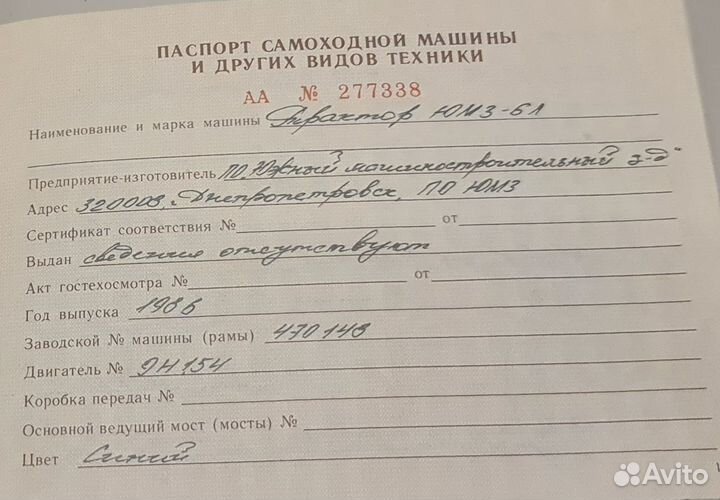 ПАСПОРТ САМОХОДНОЙ МАШИНЫ
И ДРУГИХ ВИДОВ ТЕХНИКИ
АА № 277338
Наименование и марка машины Трактор ЮМЗ-6Л
Предприятие-изготовитель ПО "Южный машиностроительный з-д"
Адрес 320008, г. Днепропетровск, ПО ЮМЗ
Сертификат соответствия № от
Выдан сведения отсутствуют
Акт гостехосмотра № от
Год выпуска 1986
Заводской № машины (рамы) 470148
Двигатель № 9Н154
Коробка передач №
Основной ведущий мост (мосты) №
Цвет Синий
Avito